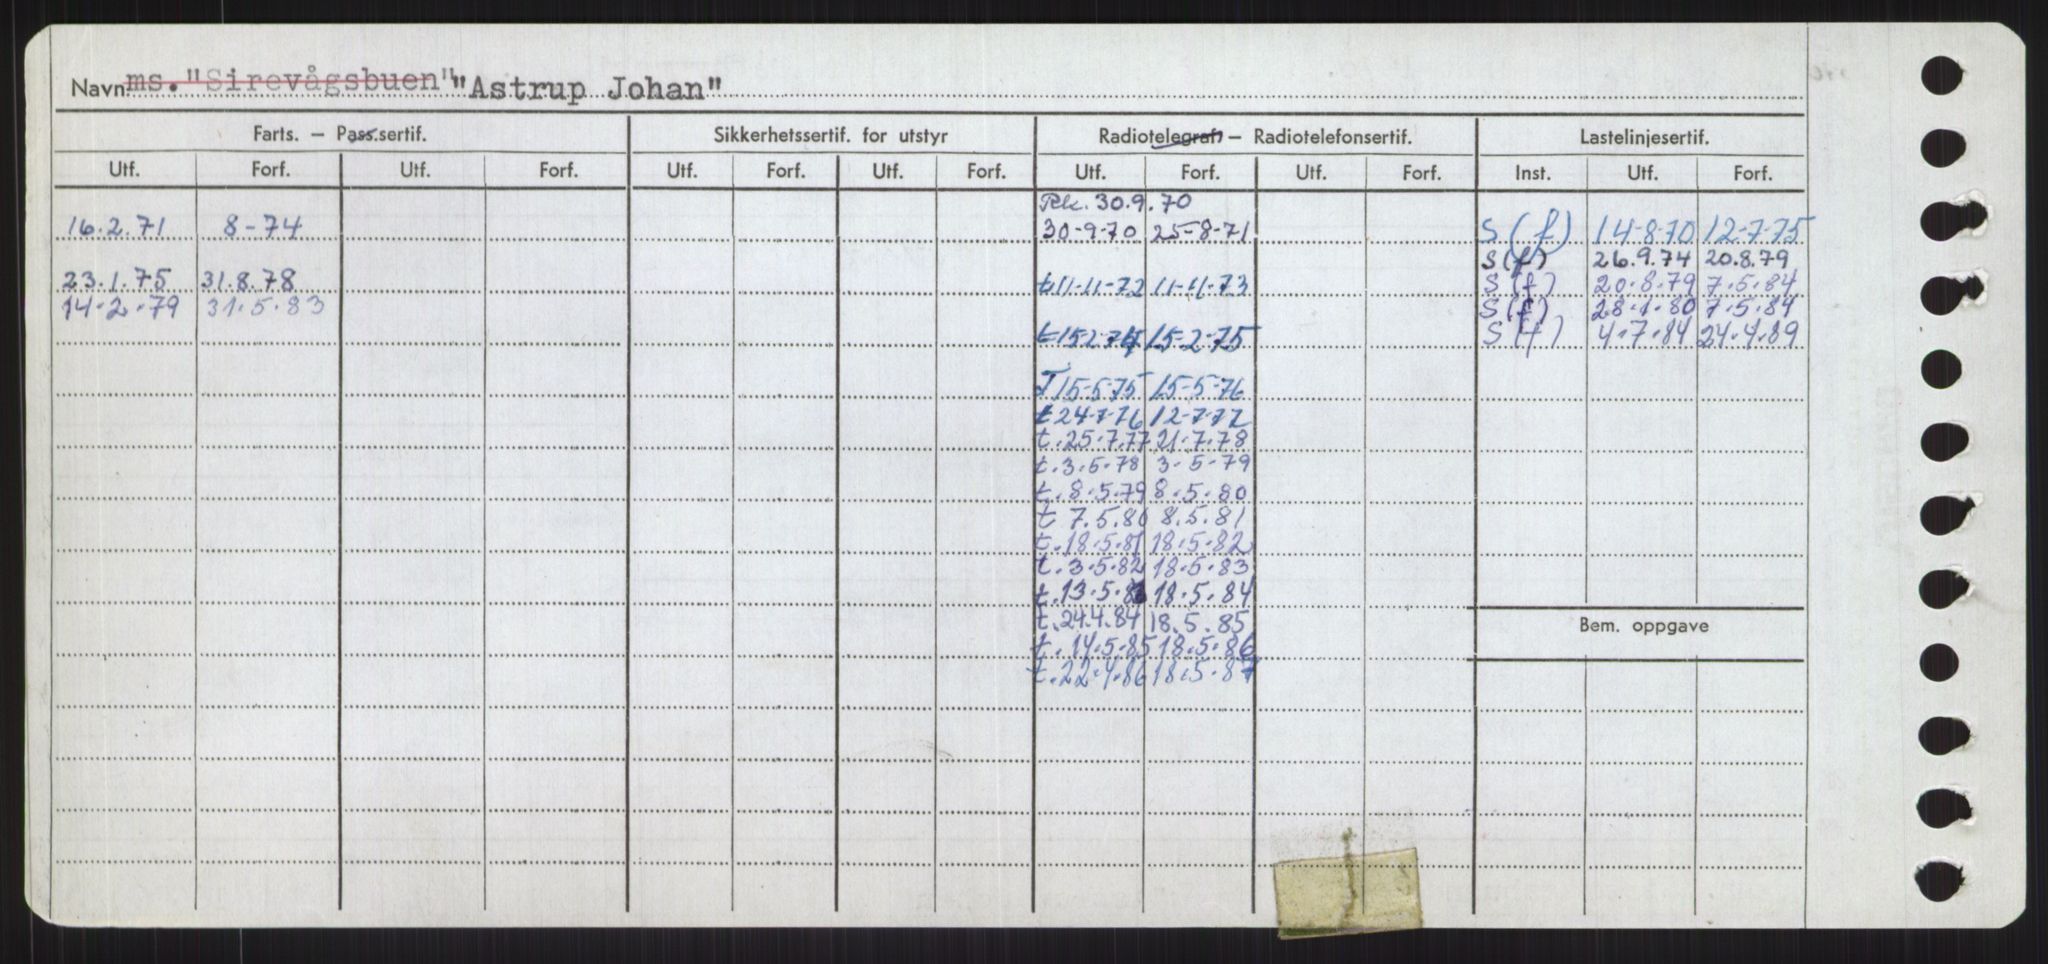 Navn ms. "Sirevågsbuen" "Astrup Johan"
Farts. – Pass.sertif. Sikkerhetssertif. for utstyr Radiotelegraf – Radiotelefonsertif. Lastelinjesertif.
Utf. Forf. Utf. Forf. Utf. Forf. Utf. Forf. Utf. Forf. Utf. Forf. Inst. Utf. Forf.
Rk. 30.9.70
16.2.71 8-74 30-9-70 25-8-71 S (f) 14-8-70 12-7-75
S (f) 26.9.74 20.8.79
23.1.75 31.8.78 t 11-11-72 11-11-73 S (f) 20.8.79 7.5.84
14.2.79 31.5.83 S (f) 28.1.80 7.5.84
t 15.2.74 15-2-75 S (f) 4.7.84 24.4.89
T 15-5-75 15-5-76
t 24-7-76 12-7-77
t. 25.7.77 21.7.78
t. 3.5.78 3.5.79
t. 8.5.79 8.5.80
t 7.5.80 8.5.81
t. 18.5.81 18.5.82
t. 3.5.82 18.5.83
t. 13.5.83 18.5.84
t. 24.4.84 18.5.85
Bem. oppgave
t. 14.5.85 18.5.86
t. 22.4.86 18.5.87